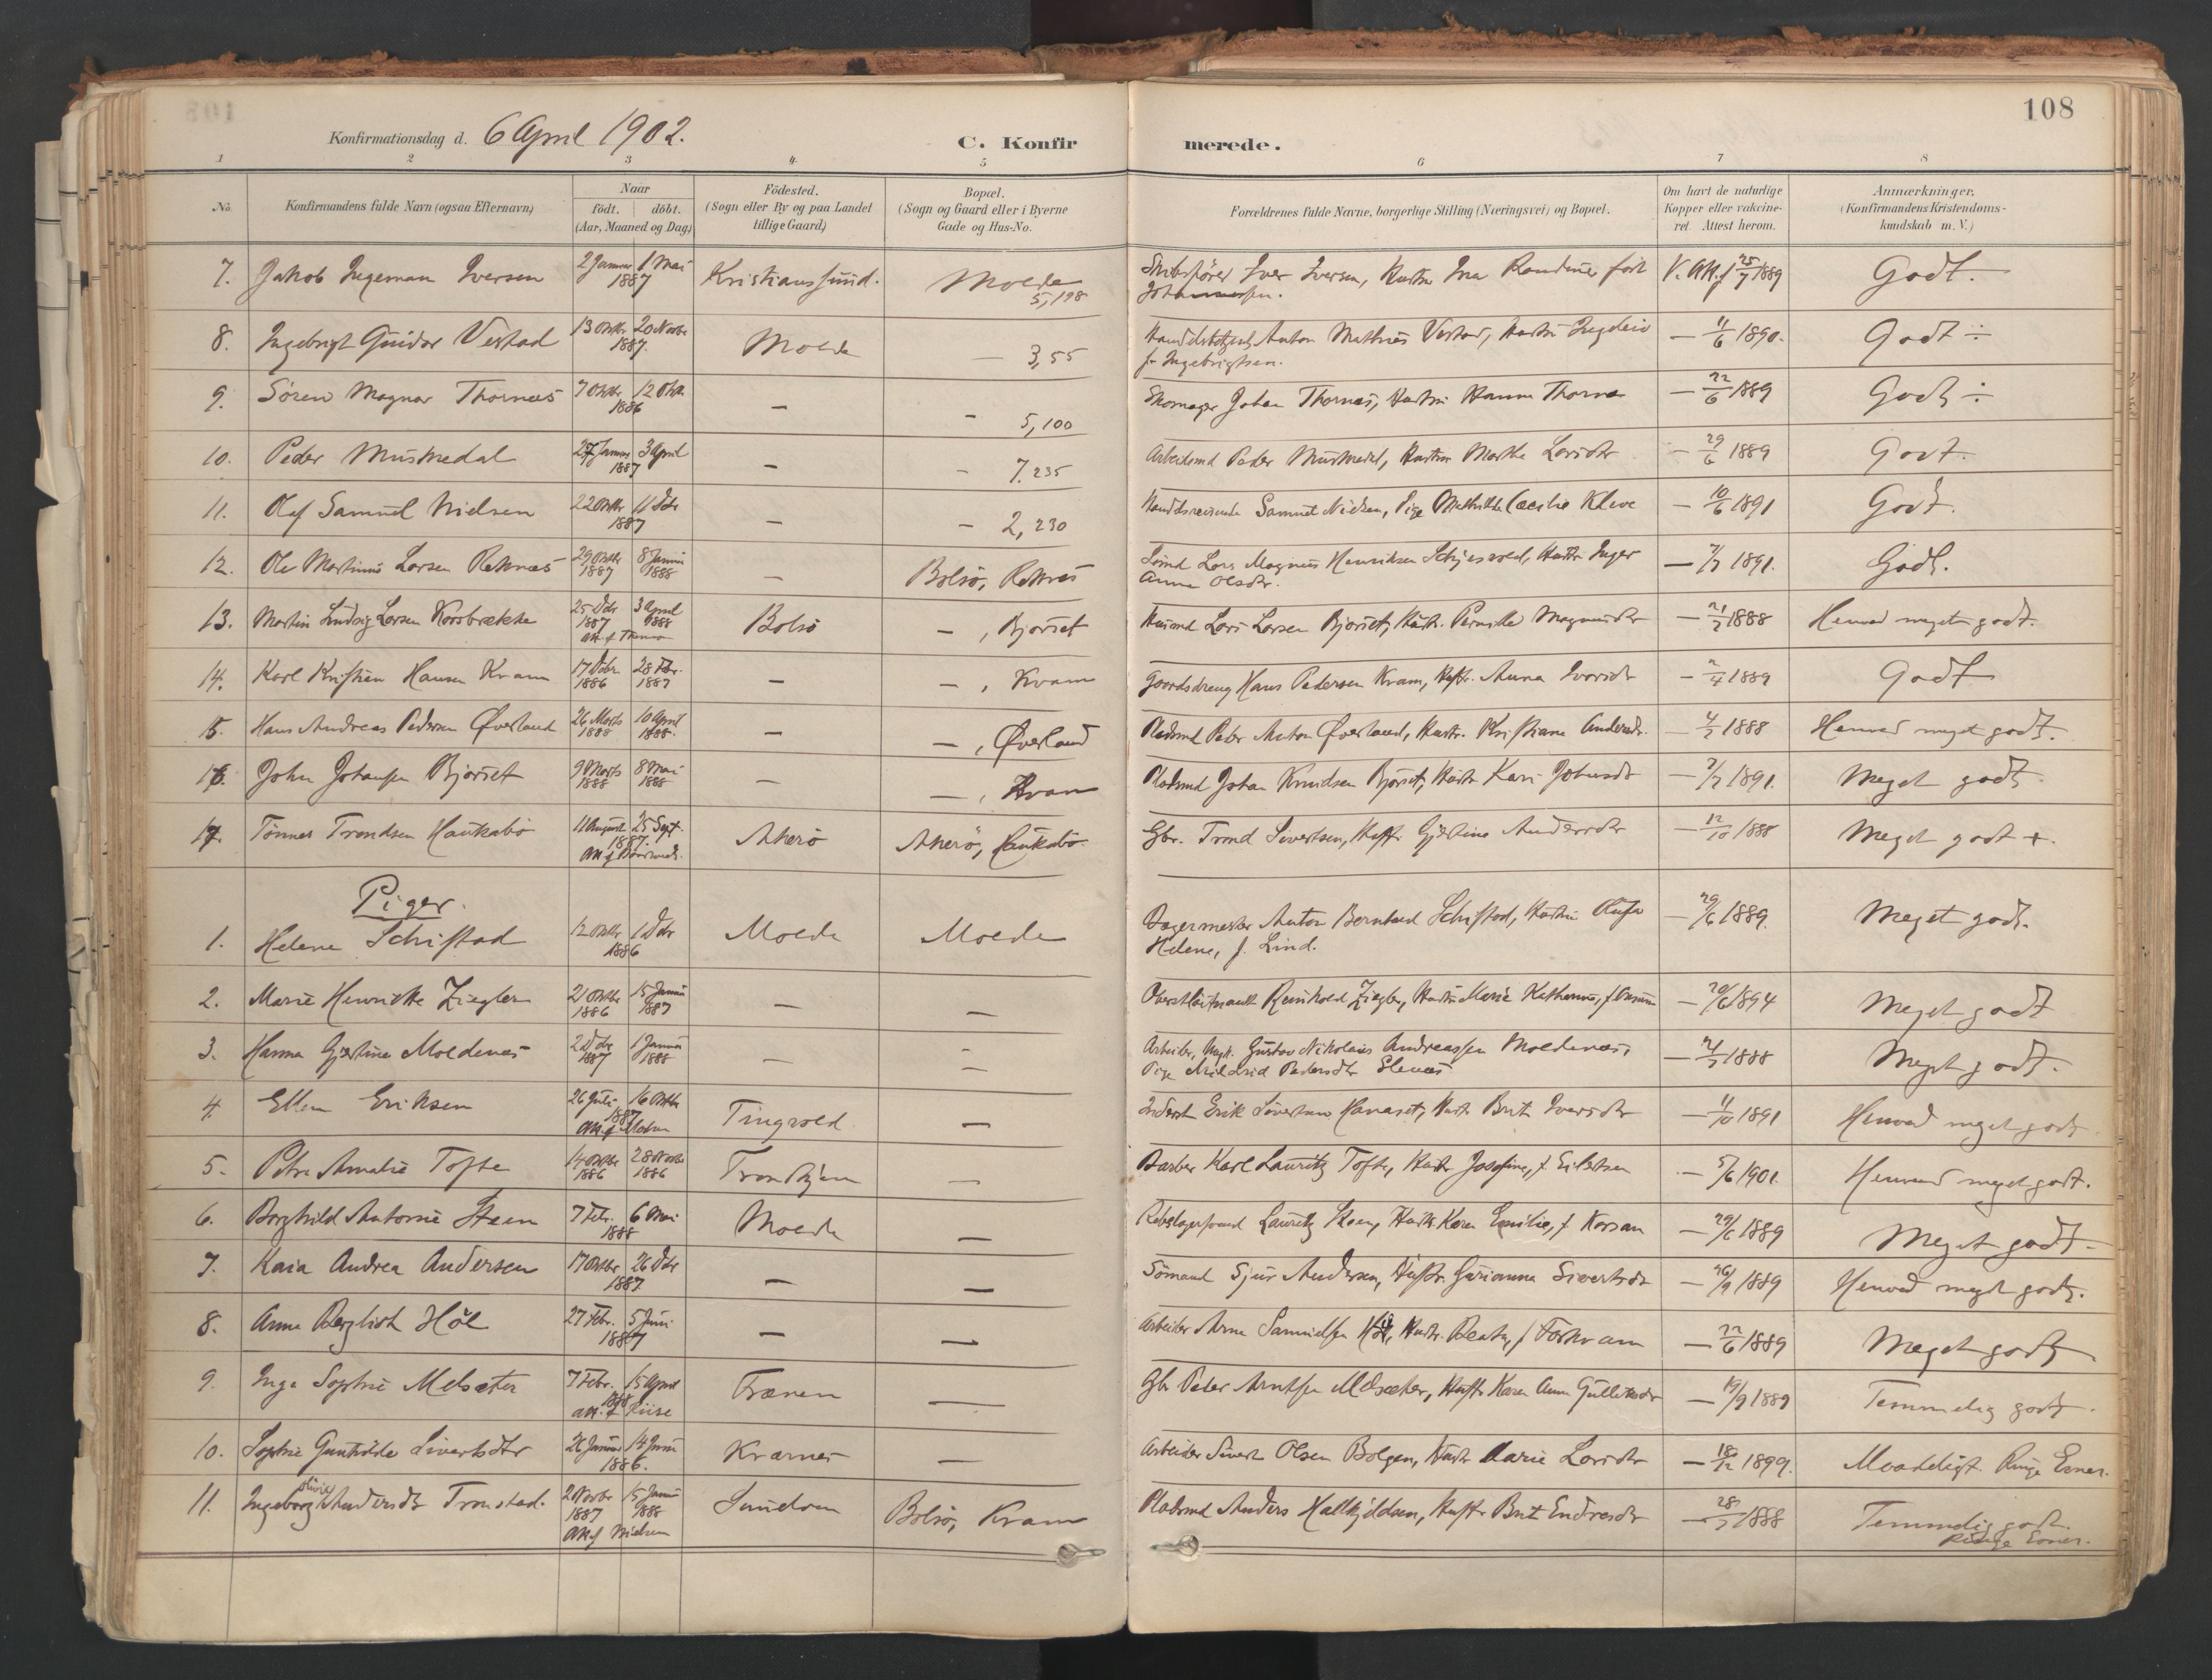 108
Konfirmationsdag d. 6 April 1902. C. Konfirmerede.
1 2 3 4 5 6 7 8
No. Konfirmandens fulde Navn (ogsaa Efternavn) Naar født. døbt. (Aar, Maaned og Dag) Födested. (Sogn eller By og paa Landet tillige Gaard) Bopæl. (Sogn og Gaard eller i Byerne Gade og Hus-No. Forældrenes fulde Navne, borgerlige Stilling (Næringsvei) og Bopæl. Om havt de naturlige Kopper eller vakcineret. Attest herom. Anmærkninger. (Konfirmandens Kristendomskundskab m. V.)
7. Jakob Ingeman Iversen 2 Januar 1 Mai 1887 Kristianssund. Molde 5,198 Iver Iversen, Hustru Ina født Johannessen. V. Att. f 25/7 1889 Godt.
8. Ingebrigt Guidar Vestad 13 Oktbr 20 Novbr 1887. Molde — 3,55 Anton Mathias Vestad, Hustru f. Ingebrigtsen. — 11/6 1890. Godt ÷
9. Søren Magnar Thornæs 7 Oktbr 12 1886 — — 5,100 Skomager Johan Thornæs, Hustru Hanna Thornæs — 22/6 1889 Godt ÷
10. Peder Musmedal 27 Januar 3 April 1887 — — 7.235 Arbeidsmd Peder Musmedal, Hustru Marthe Larsdtr — 29/6 1889 Godt.
11. Olaf Samuel Nielsen 22 Oktbr 11 Dbr 1887 — — 2,230 Samuel Nielsen, Pige Mathilde Cæcilie Kleve — 10/6 1891 Godt.
12. Ole Martinus Larsen Reknæs 29 Oktbr 1887 8 Januar 1888 — Bolsø, Reknæs Sømd Lars Magnus Henriksen, Hustru Inger Anna Olsdtr. — 7/7 1891. Godt.
13. Martin Ludvig Larsen Korsbrække 25 Dbr 1887 3 April 1888 Bolsø — , Bjørset Husmd Lars Larsen Bjørset, Hustr. Pernille Magnusdtr 1888 Henved meget godt.
14. Karl Kristian Hansen Kvam 17 Dcbr 1886 28 Febr. 1887 — — , Kvam Gaardsdreng Hans Pedersen Kvam, Hustr. Anna Iversdtr — 2/4 1889 Godt
15. Hans Andreas Pedersen Øverland 26 Marts 1888 10 April 1888. — — , Øverland Pladsmd Peder Anton Øverland, Hustr. Kristiane Andersdr. 1888 Henved meget godt.
16. John Johansen Bjørset 9 Marts 1888 8 Mai 1888 — — , Kvam Pladsmd Johan Knudsen Bjørset, Hustr Kari Johnsdtr 1891. Meget godt
17. Tønnes Trondsen Haukabø 11 August 25 Sept. 1887. Akerø Akerø, Haukabø Gbr. Trond Sivertsen, Hustr. Gjertine Andersdtr — 12/10 1888 Meget godt +.
Piger.
1. Helene Schistad 12 Oktbr 1 Dbr 1886 Molde Molde Anton Bernhard Schistad, Hustru Helene, f. Lind. — 29/6 1889. Meget godt.
2. Marie Henrikke Ziegler 21 Oktbr 1886 15 Januar 1887 — — Oberstløitnant Reinhold Ziegler, Hustru Marie Katharina, — 20/6 1894 Meget godt
3. Hanna Gjertine Moldenæs 2 Dbr 1887 1 Januar 1888 — — Arbeider, Ungk. Gustav Nikolais Andreassen Moldenæs, Pige Pedersdtr 1888 Meget godt.
4. Ellen Eriksen 26 Juli 16 Oktbr 1887 Tingvold — Inderst Erik Sivertsen Hanaset, Hustr Brit Iversdtr — 11/10 1891 Henved meget godt.
5. Petra Amalie Tofte 14 Oktbr 1886 28 Novbr 1886 Trondhjem — Barber Karl Lauritz Tofte, Hustr Josefine, f. Eilertsen — 5/6 1901. Henved meget godt.
6. Borghild Antonie Steen 7 Febr. 6 Mai 1888 Molde — Lauritz Steen, Hustr. Karen Emilie, f. Korsan — 29/6 1889 Meget godt.
7. Kaia Andrea Andersen 17 Oktbr 26 Dbr 1887 — — Sømand Sjur Andersen, Hustr. Gurianna Sivertsdtr — 26/9 1889 Henved meget godt.
8. Anna Bergliot Høl 27 Febr. 5 Juni 1887 — — Arbeider Arne Samuelsen Høl, Hustr. Beate, f. Torhvam — 22/6 1889 Meget godt
9. Inga Sophie Melsæter 7 Febr. 15 April 1888 att. f. Riise Frænen — Gbr Peder Arntsen Melsæter, Hustr Karen Anna Gulliksdr — 19/9 1889 Temmelig godt.
10. Sophie Guntvilde Sivertsdtr 26 Januar 14 Juni 1886. Kværnes — Arbeider Sivert Olsen Bolgen, Hustr Marie Larsdtr — 18/12 1899. Maadeligt. Ringe Evner.
11. Ingeborg Olivie Andersdtr Tronstad. 2 Novbr 1887 15 Januar 1888 Att. f. Nielsen Sundalen Bolsø, Kvam Pladsmd Anders Halkjeldsen, Hustr Brit Endresdtr — 28/7 1888 Temmelig godt. Ringe Evner.